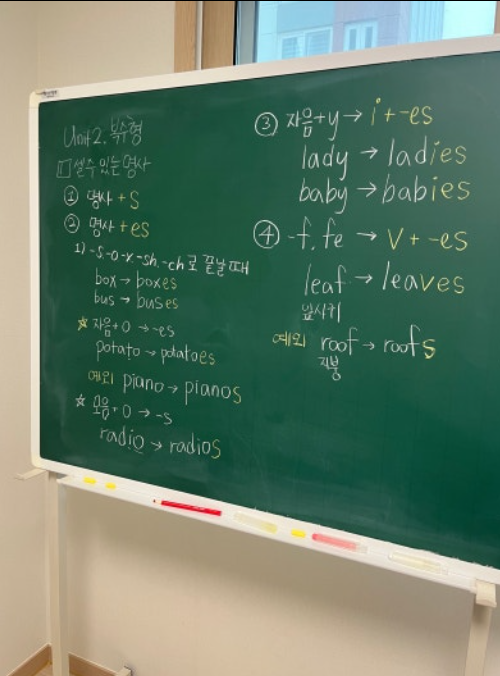 Unit 2. 복수형
1 셀 수 있는 명사
① 명사 + s
② 명사 + es
1) -s. -o -x -sh. -ch 로 끝날 때
box → boxes
bus → buses
☆ 자음 + o → -es
potato → potatoes
예외 piano → pianos
☆ 모음 + o → -s
radio → radios
③ 자음 + y → i + -es
lady → ladies
baby → babies
④ -f. fe → v + -es
leaf → leaves
잎사귀
예외 roof → roofs
지붕